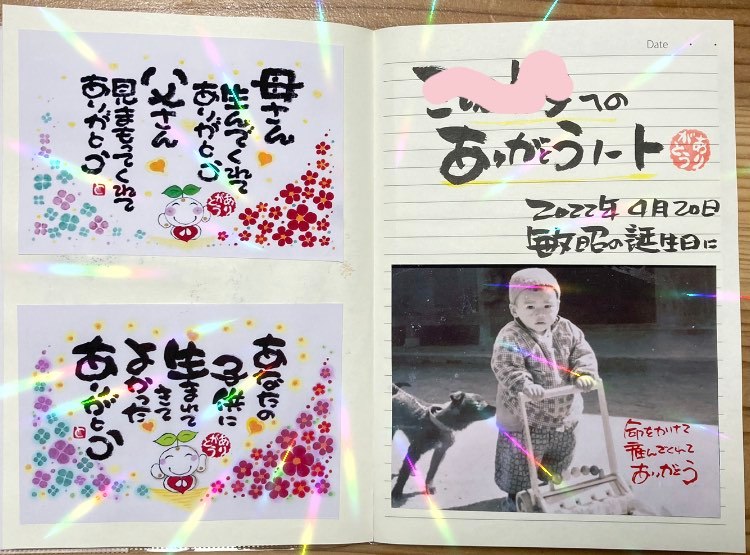 母さん
生んでくれて
ありがとう
父さん
見まもってくれて
ありがとう
ありがとう
あなたの
子供に
生まれて
きて
よかった
ありがとう
ありがとう
Date
への
ありがとうノート
ありがとう
2022年4月20日
敏昭の誕生日に
命をかけて
産んでくれて
ありがとう